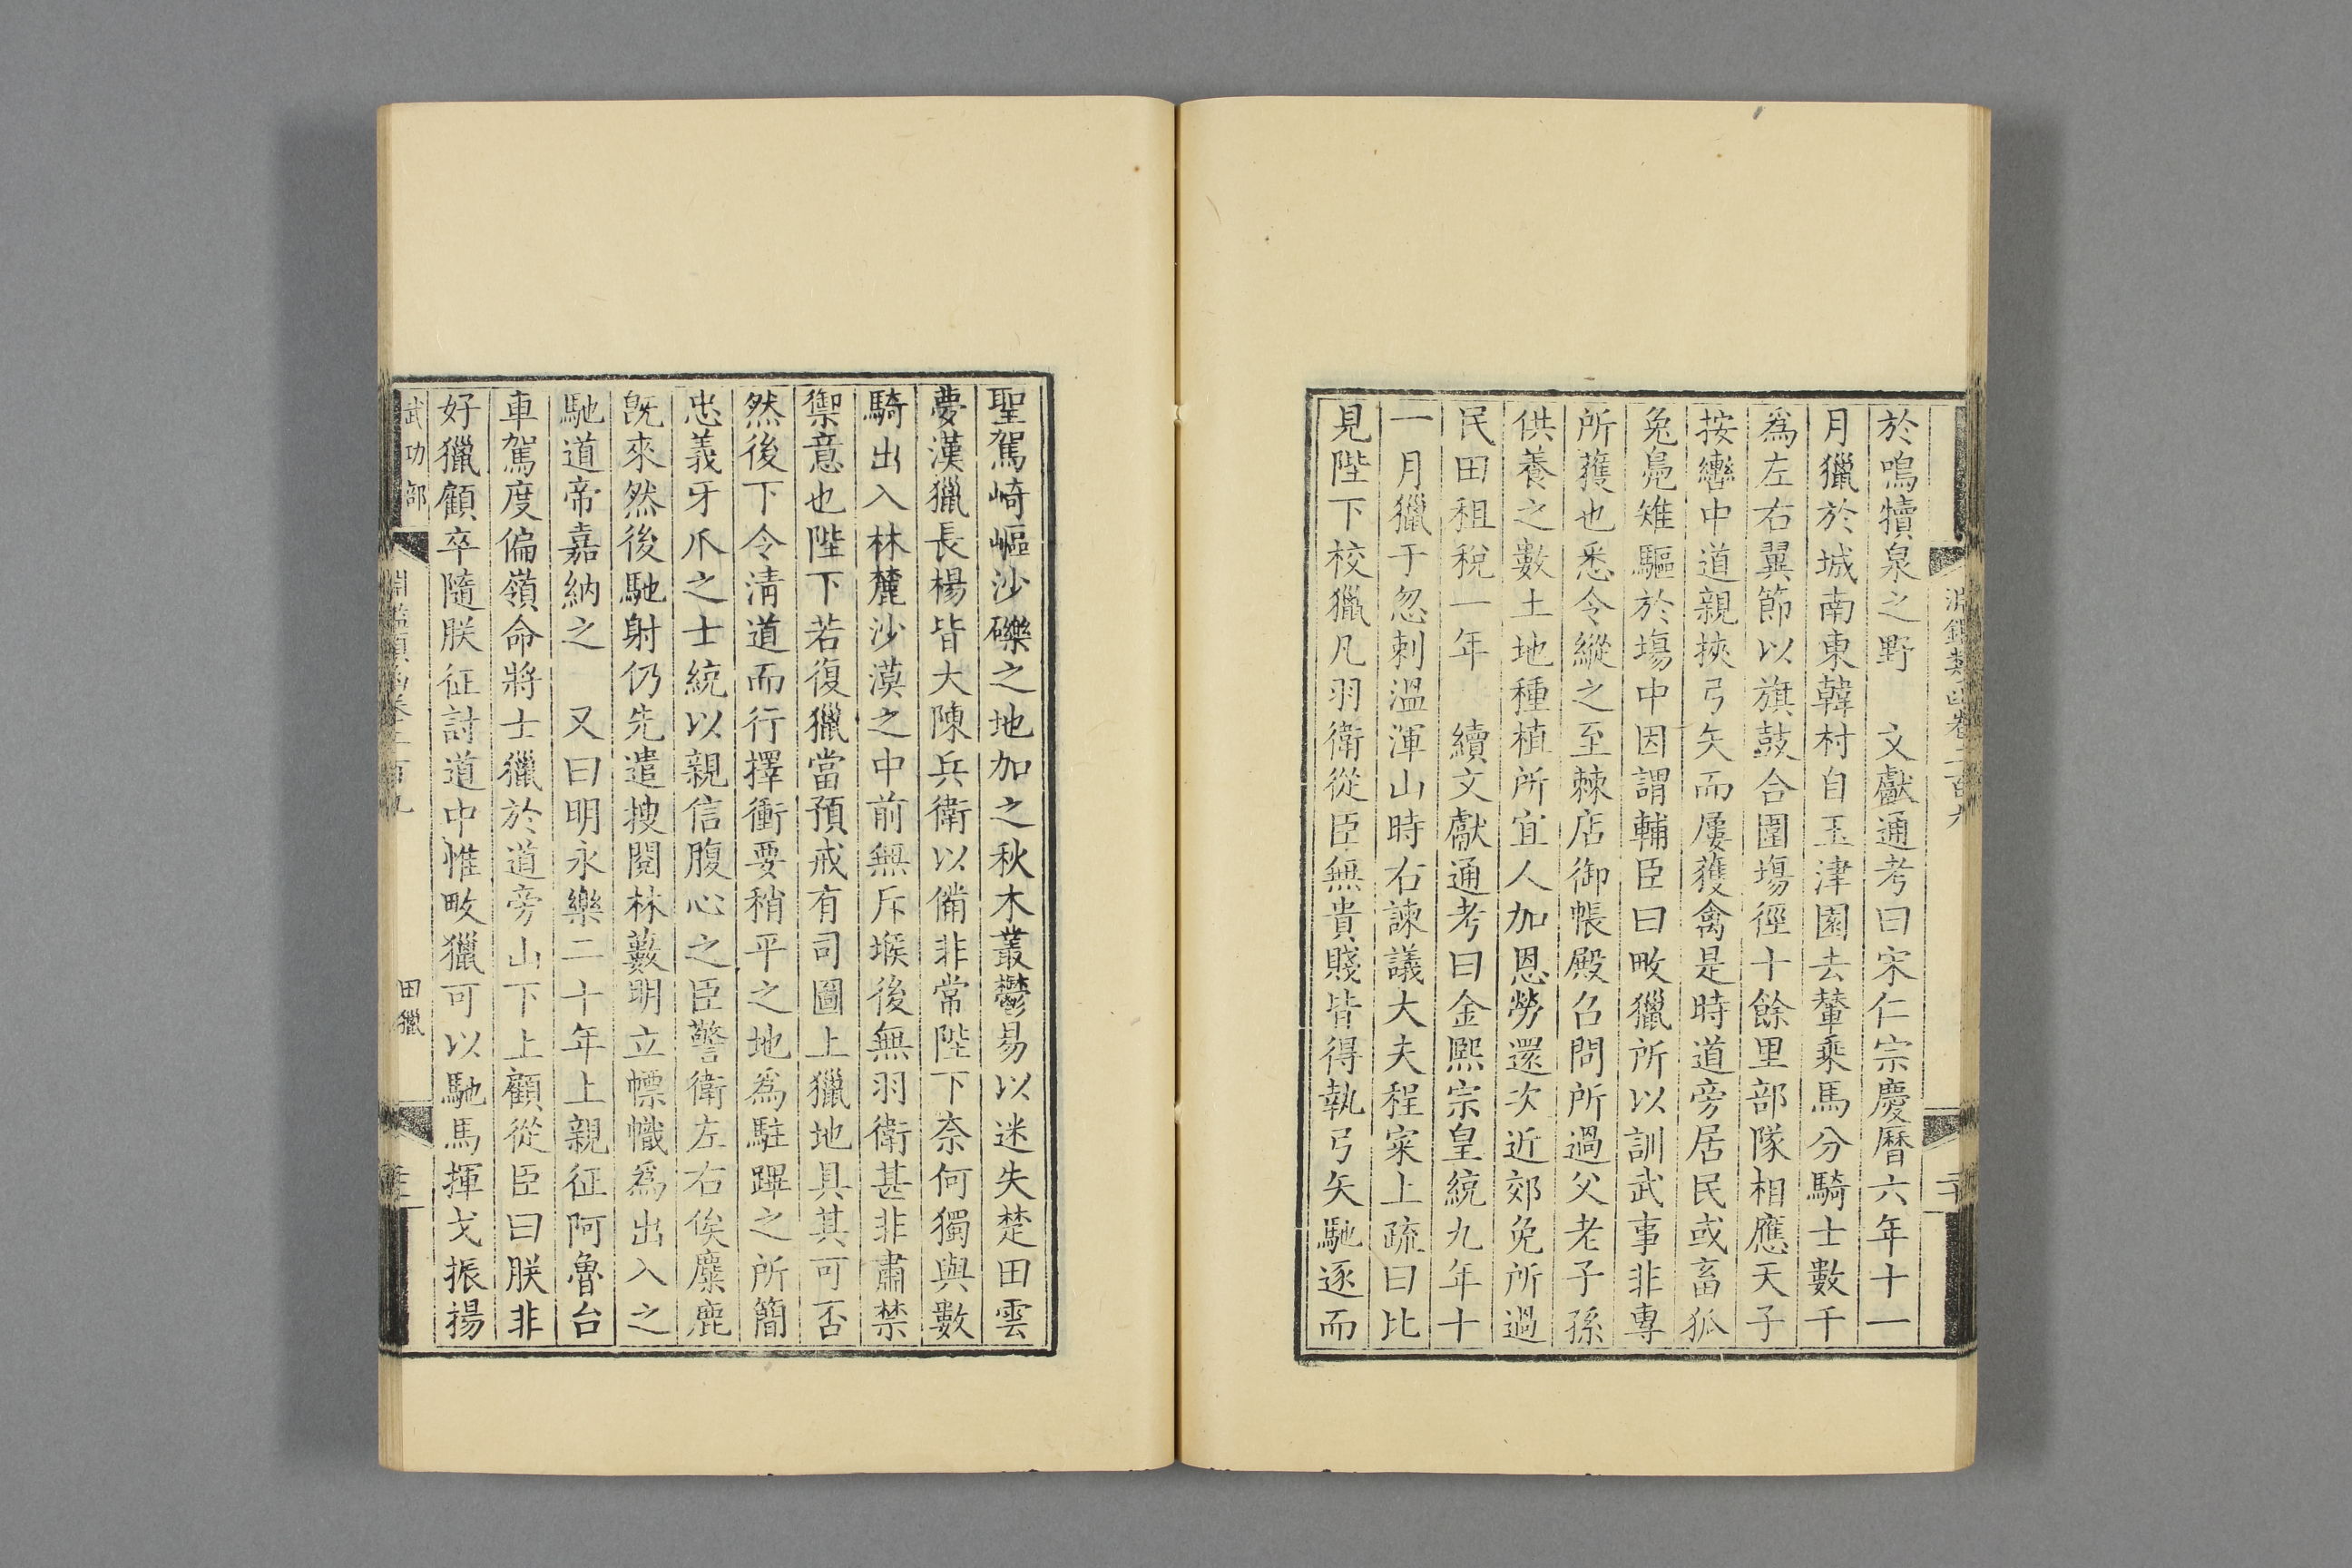 於鳴犢泉之野　文獻通考曰宋仁宗慶曆六年十一
月獵於城南東韓村自玉津園去輦乘馬分騎士數千
爲左右翼節以旗鼓合圍場徑十餘里部隊相應天子
按轡中道親挾弓矢而屢獲禽是時道旁居民或畜狐
兔鳧雉驅於場中因謂輔臣曰畋獵所以訓武事非專
所獲也悉令縱之至棘店御帳殿召問所過父老子孫
供養之數土地種植所宜人加恩勞還次近郊免所過
民田租稅一年　續文獻通考曰金熙宗皇統九年十
一月獵于忽刺溫渾山時右諫議大夫程寀上疏曰比
見陛下校獵凡羽衛從臣無貴賤皆得執弓矢馳逐而
聖駕崎嶇沙礫之地加之秋木叢鬱易以迷失楚田雲
夢漢獵長楊皆大陳兵衛以備非常陛下奈何獨與數
騎出入林麓沙漠之中前無斥堠後無羽衛甚非肅禁
禦意也陛下若復獵當預戒有司圖上獵地具其可否
然後下令清道而行擇衝要稍平之地爲駐蹕之所簡
忠義牙爪之士統以親信腹心之臣警衛左右俟麋鹿
旣來然後馳射仍先遣搜閱林藪明立幖幟爲出入之
馳道帝嘉納之　又曰明永樂二十年上親征阿魯台
車駕度偏嶺命將士獵於道旁山下上顧從臣曰朕非
好獵顧卒隨朕征討道中惟畋獵可以馳馬揮戈振揚
武功部
淵鑑類函卷二百九
田獵